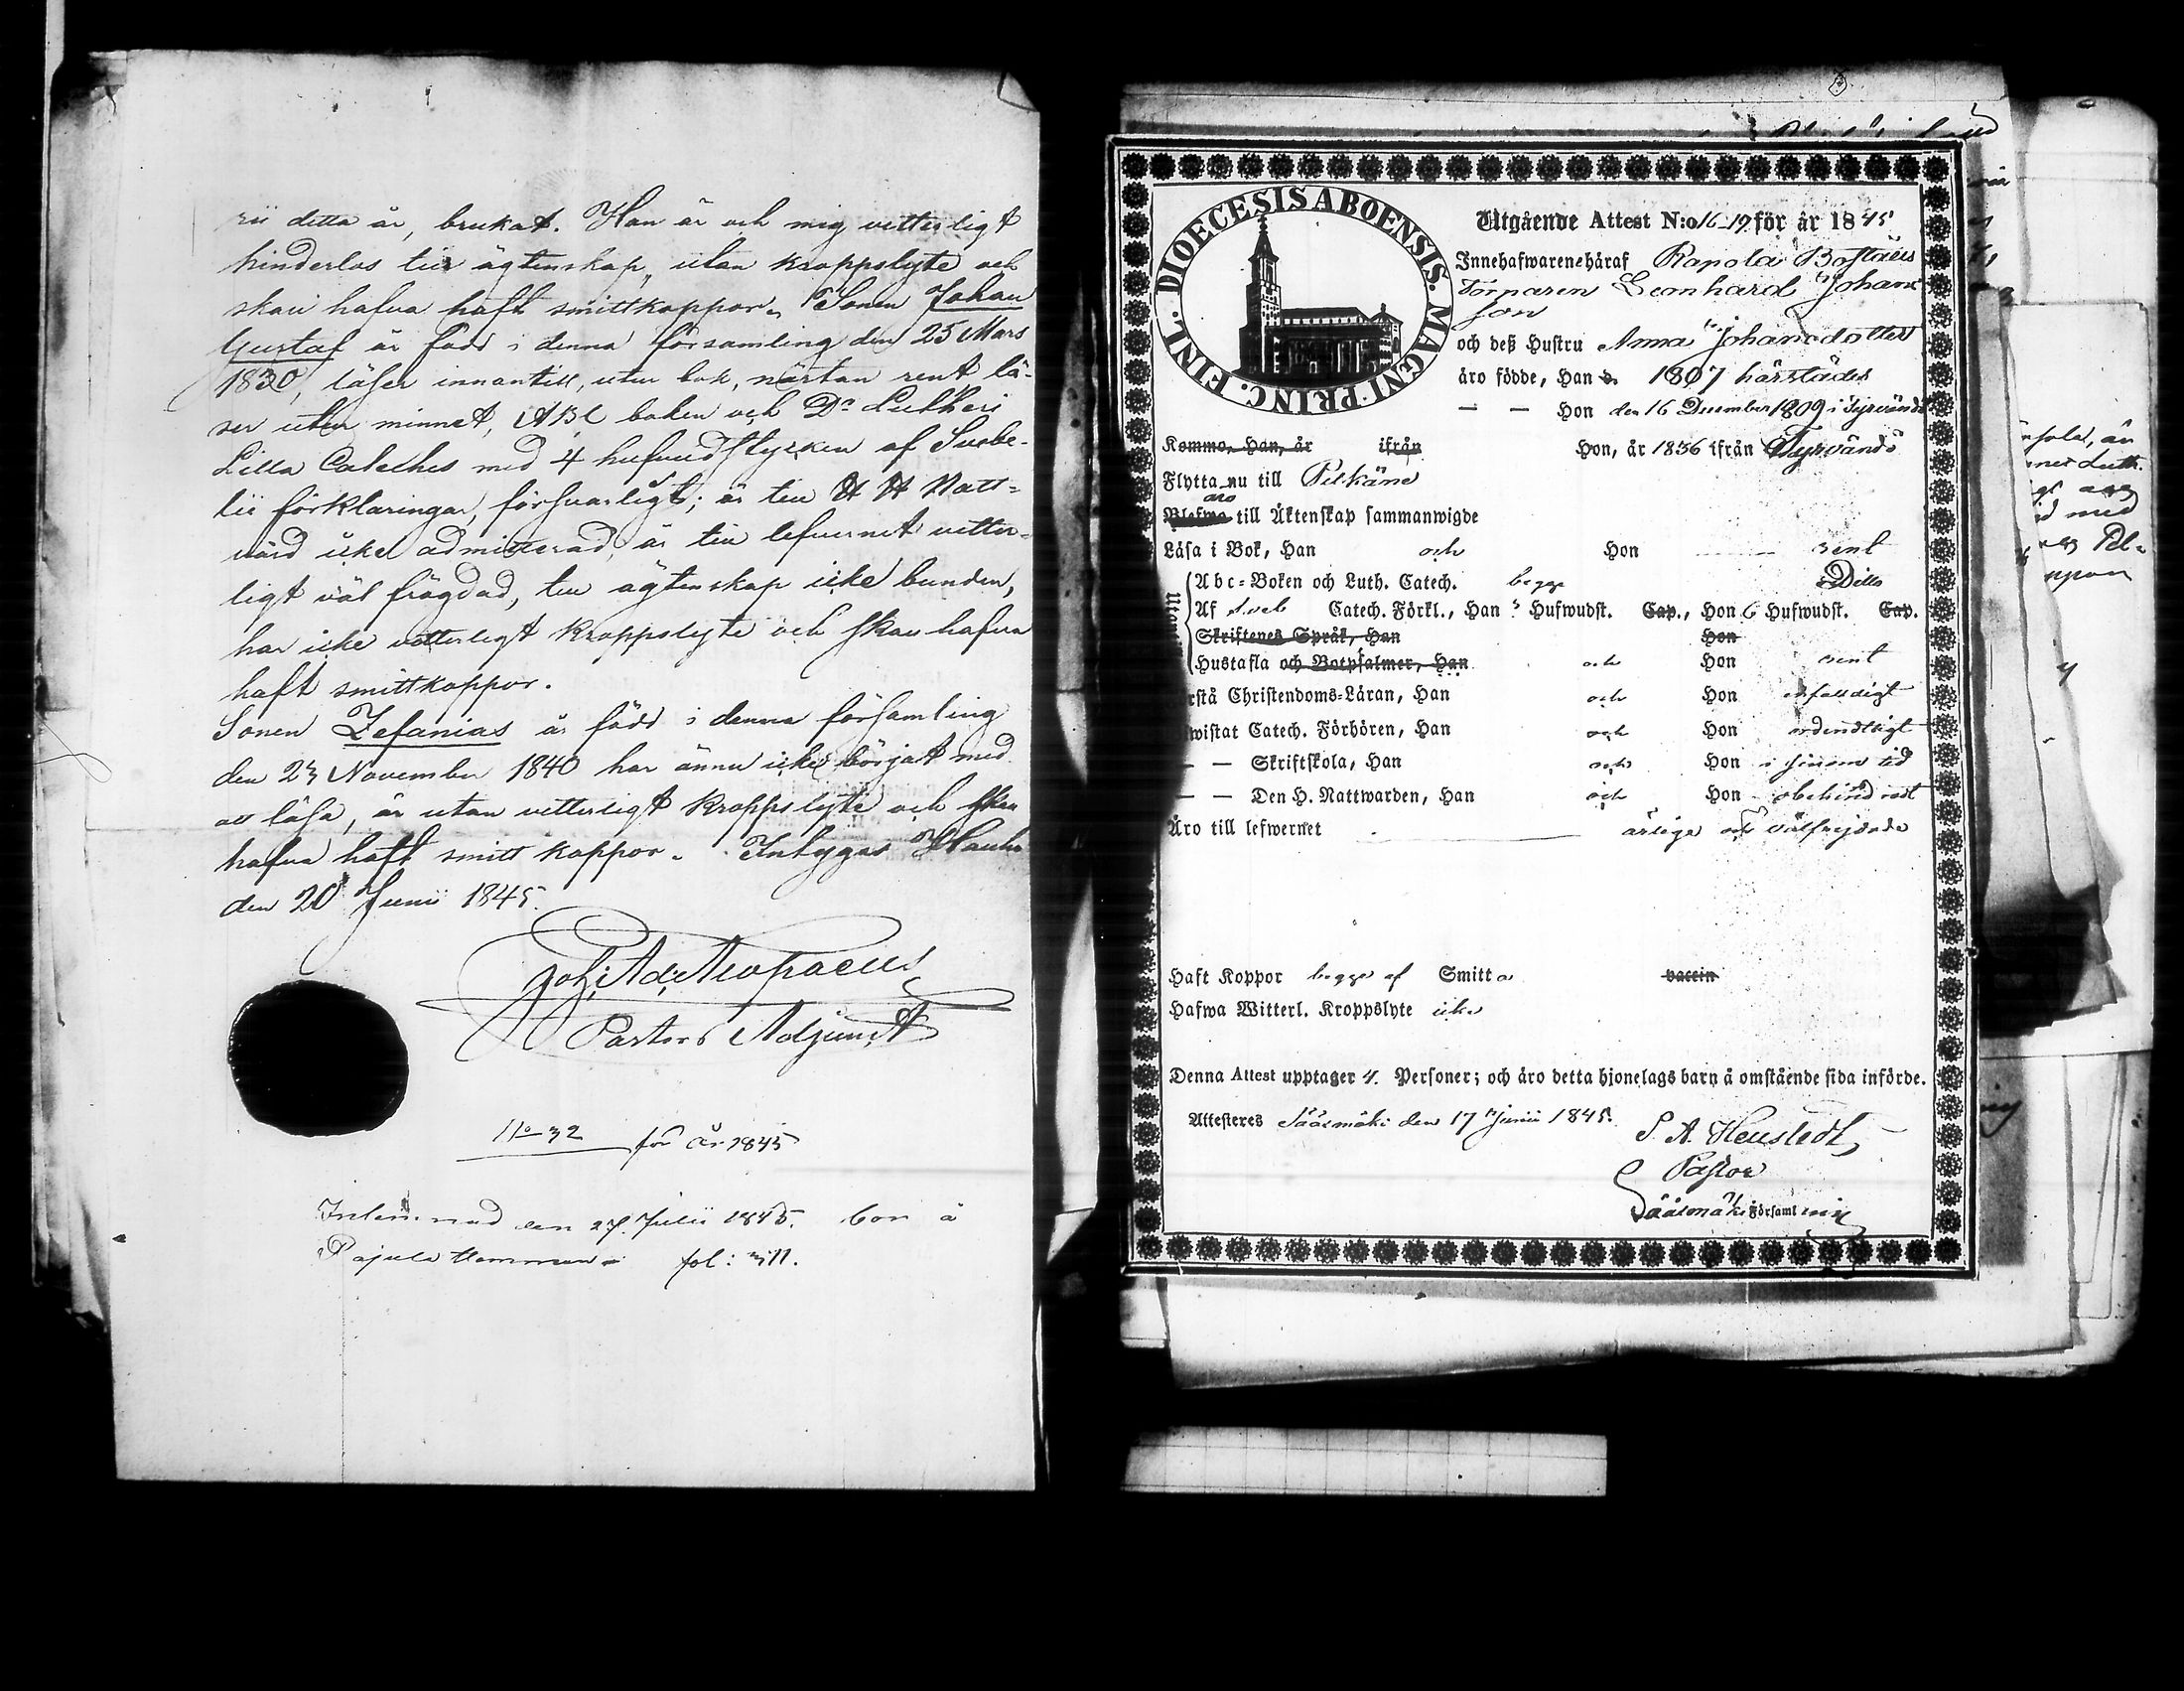 rii detta år, brukat. Han är och mig vetterligt
hinderlös till ägtenskap, utan kroppslyte och
skall hafva haft smittkoppor. Sonen Johan
Gustaf är född i denna församling den 25 Mars
1830, läser innantill, utur bok, nästan rent lä-
ser utur minnet, ABC boken och Dr Lutheri
Lilla Cateches med 4 hufvudstycken af Svebe-
lii förklaringar, försvarligt; är till H H Natt-
vard icke admitterad, är till lefvernet vetter-
ligt väl frägdad, till ägtenskap icke bunden,
har icke vetterligt kroppslyte och skall hafva
haft smittkoppor.
Sonen Zefanias är född i denna församling
den 23 November 1840 har ännu icke börjat med
att läsa, är utan vetterligt kroppslyte och skall
hafva haft smitt koppor. Intygas Hauho
den 20 Junii 1845.
Joh: Ad:
Pastors Adjunct
No 32 för år 1845
Inlemnad den 27 Julii 1845. bor å
Pajula Hemman fol: 311.
DIOECESIS ABOENSIS. MAGNI PRINC. FINL.
Utgående Attest N:o 16-19 för år 1845
Innehafwarene häraf Rapola Boställs
Torparen Leonhard Johans
son
och deß Hustru Anna Johansdotter
äro födde, Han d. 1807 härstädes
— — Hon den 16 December 1809 i Tyrvändö
Komme, Han, år ifrån Hon, år 1836 ifrån Tyrvändö
Flytta nu till Pelkäne
äro
Blefwo till Äktenskap sammanwigde
Läsa i Bok, Han och Hon rent
Abc-Boken och Luth. Catech. begge Ditto
Af Sveb Catech. Förkl., Han 5 Hufwudst. Cap., Hon 6 Hufwudst. Cap.
Skriftenes Språk, Han Hon
Hustafla och Botpsalmer, Han och Hon rent
rstå Christendoms-Läran, Han och Hon enfaldigt
wistat Catech. Förhören, Han och Hon ordendtligt
— — Skriftskola, Han och Hon i sinom tid
— — Den H. Nattwarden, Han och Hon obehindradt
Äro till lefwernet ärlige och välfrejdade
Haft Koppor begge af Smitta vaccin
Hafwa Witterl. Kroppslyte icke
Denna Attest upptager 4. Personer; och äro detta hjonelags barn å omstående sida införde.
Attesteres Sääxmäki den 17 Junii 1845.
S. A. Heustedt
Pastor
Sääxmäki Församling